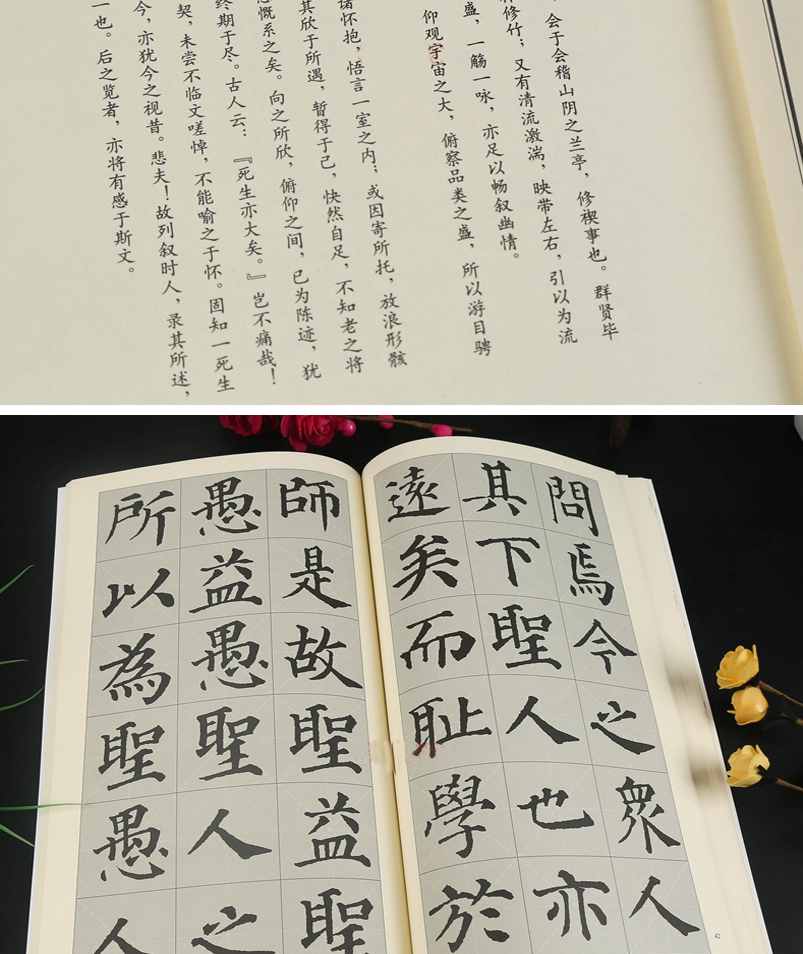 ，会于会稽山阴之兰亭，修禊事也。群贤毕
修竹；又有清流激湍，映带左右，引以为流
盛，一觞一咏，亦足以畅叙幽情。
仰观宇宙之大，俯察品类之盛，所以游目骋
诸怀抱，悟言一室之内；或因寄所托，放浪形骸
其欣于所遇，暂得于己，快然自足，不知老之将
慨系之矣。向之所欣，俯仰之间，已为陈迹，犹
终期于尽。古人云：『死生亦大矣。』岂不痛哉！
契，未尝不临文嗟悼，不能喻之于怀。固知一死生
今，亦犹今之视昔。悲夫！故列叙时人，录其所述，
一也。后之览者，亦将有感于斯文。
問焉今之衆人
其下聖人也亦
遠矣而耻學於
師是故聖益聖
愚益愚聖人之
所以為聖愚人
42